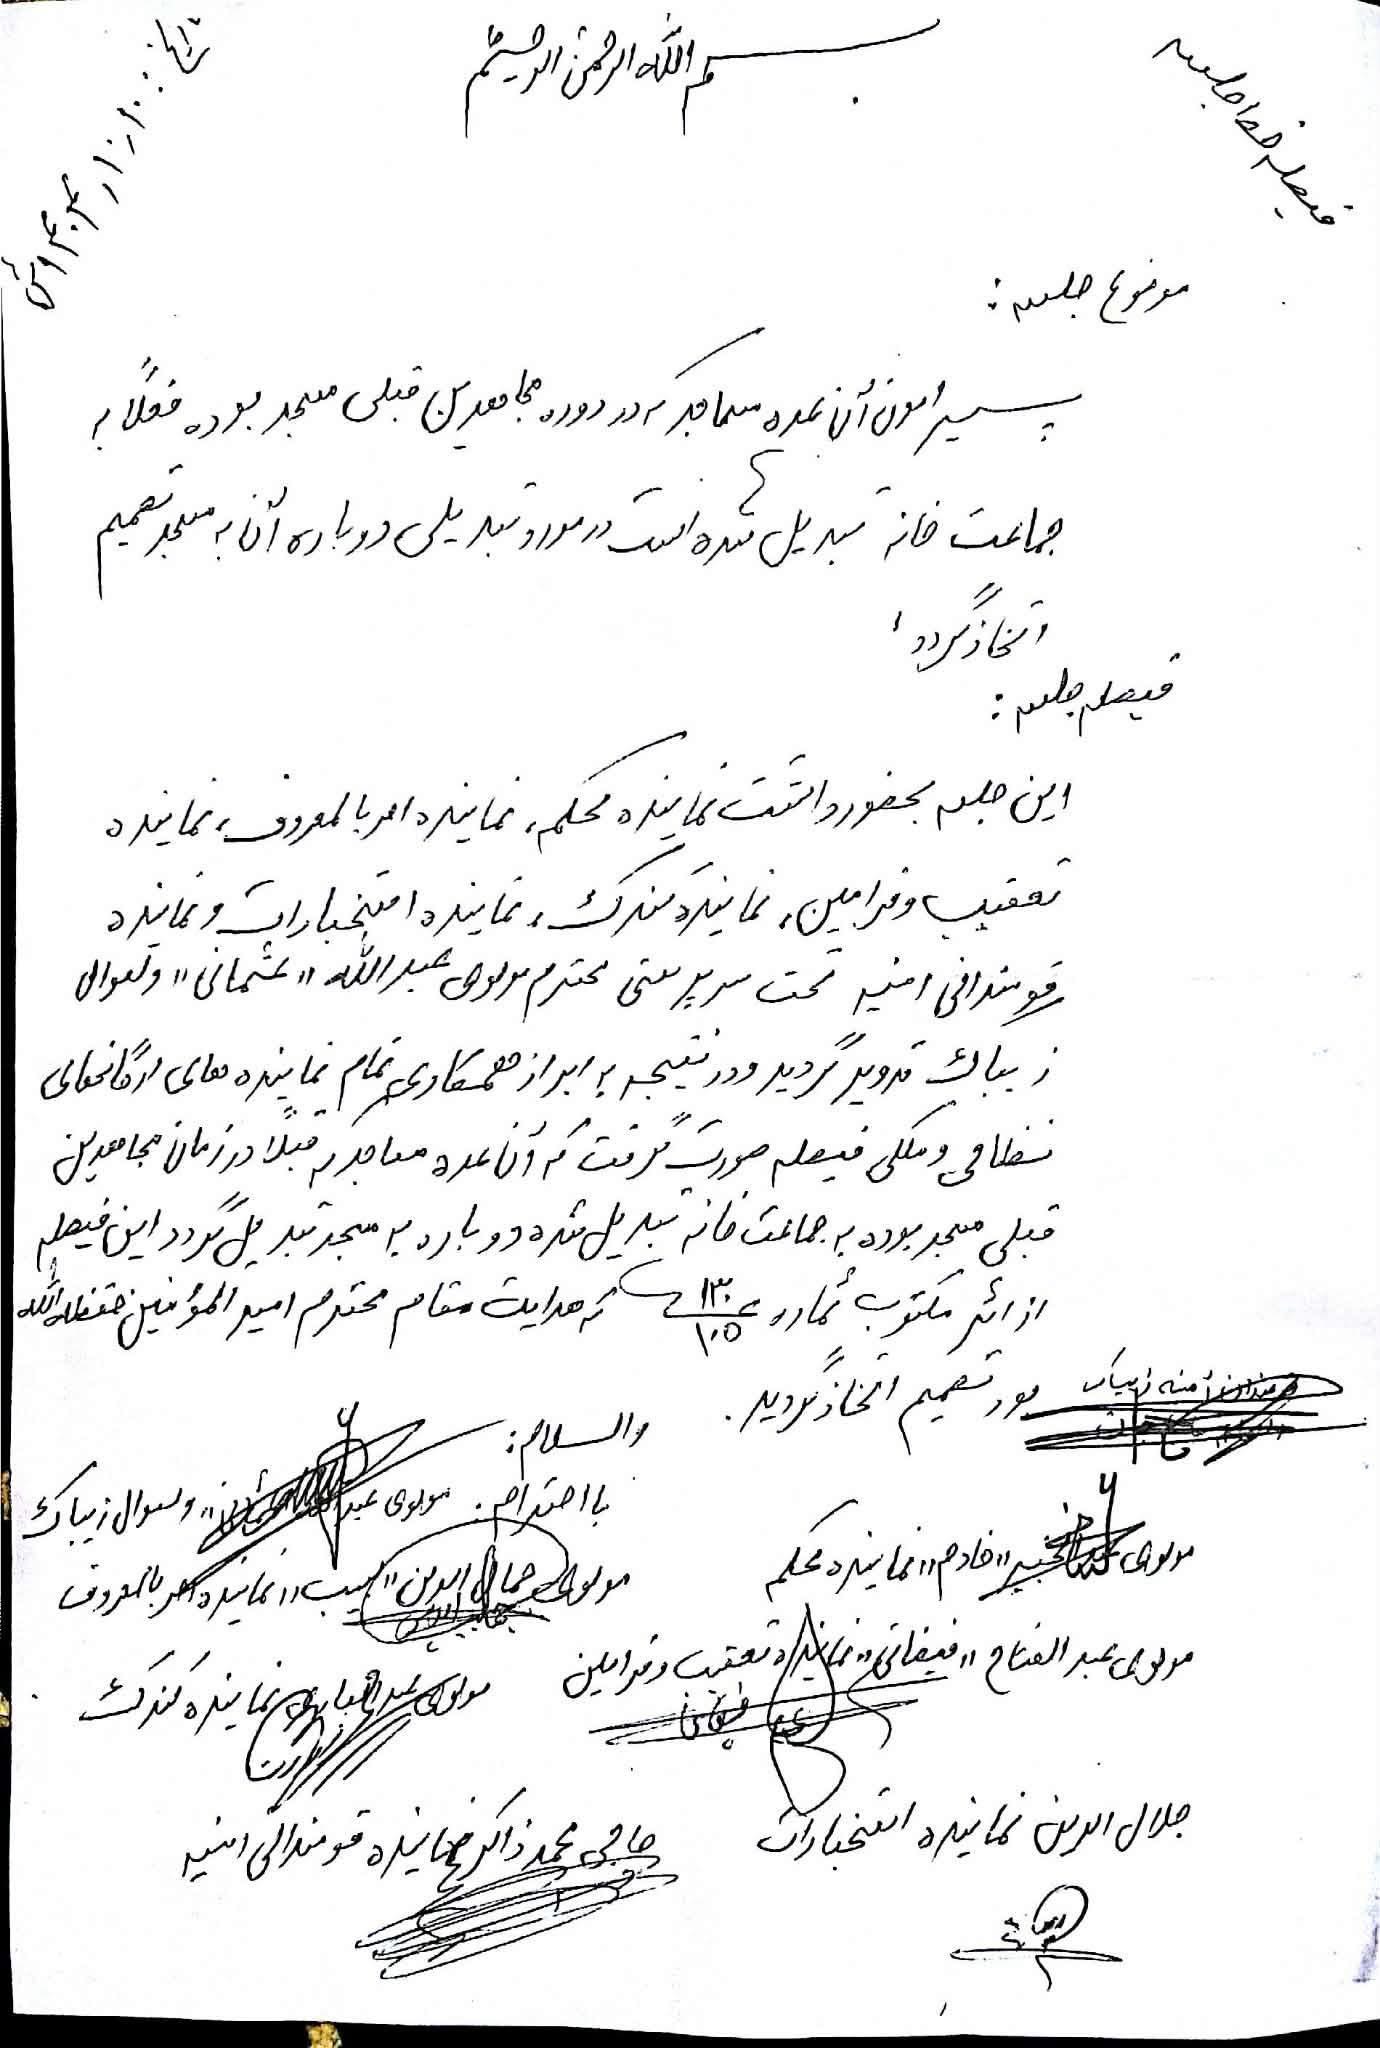 بسم الله الرحمن الرحیم
فیصله خط جلسه
موضوع جلسه :
پیرامون آن عده مساجد که در دوره مجاهدین قبلی مسجد بوده فعلاً به
جماعت خانه تبدیل شده است در مورد تبدیلی دوباره آن به مسجد تصمیم
اتخاذ گردد
فیصله جلسه :
این جلسه بحضور داشت نماینده محکمه، نماینده امر بالمعروف، نماینده
تعقیب و فرامین، نماینده گمرک، نماینده استخبارات و نماینده
قومندانی امنیه تحت سرپرستی محترم مولوی عبدالله "عثمانی" ولسوال
زیباک تدویر گردید و در نتیجه به ابراز همکاری تمام نماینده های ارگانهای
نظامی و ملکی فیصله صورت گرفت که آن عده مساجد که قبلاً در زمان مجاهدین
قبلی مسجد بوده به جماعت خانه تبدیل شده دوباره به مسجد تبدیل گردد این فیصله
از اثر مکتوب شماره ۱۳۰/۱۰۵ که هدایت مقام محترم امیر المؤمنین حفظه الله
بود تصمیم اتخاذ گردید.
قومندان امنیه زیباک
والسلام :
با احترام. مولوی عبدالله "عثمانی" ولسوال زیباک
مولوی "خادم" نماینده محکمه
مولوی جمال الدین نماینده امر بالمعروف
مولوی عبدالفتاح "فیضانی" نماینده تعقیب و فرامین
مولوی نماینده گمرک
جلال الدین نماینده استخبارات
حاجی محمد ذاکر نماینده قومندانی امنیه